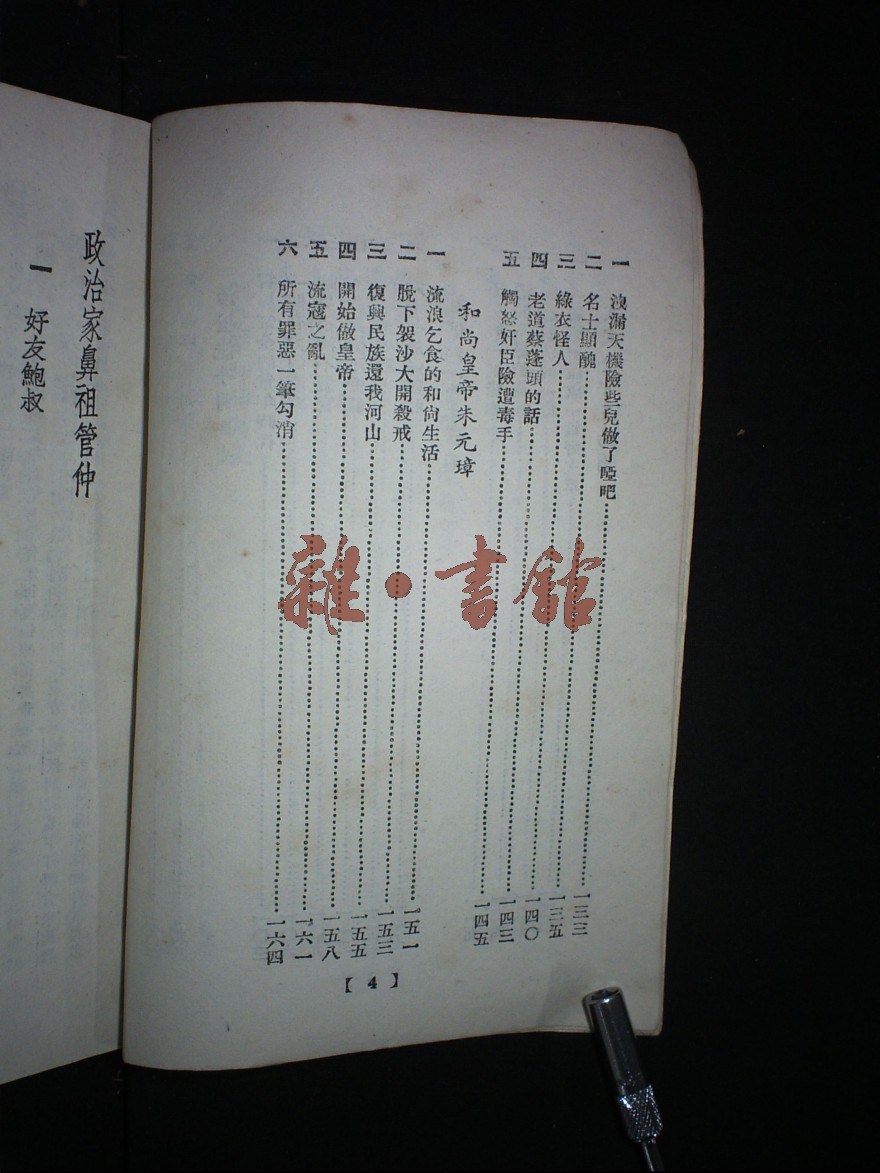 一 洩漏天機險些兒做了啞吧……一三三
二 名士顯醜……一三五
三 綠衣怪人……一四〇
四 老道蔡蓬頭的話……一四三
五 觸怒奸臣險遭毒手……一四五
和尚皇帝朱元璋
一 流浪乞食的和尙生活……一五一
二 脫下袈沙大開殺戒……一五三
三 復興民族還我河山……一五五
四 開始做皇帝……一五八
五 流寇之亂……一六一
六 所有罪惡一筆勾消……一六四
【4】
政治家鼻祖管仲
一 好友鮑叔
雜·書館